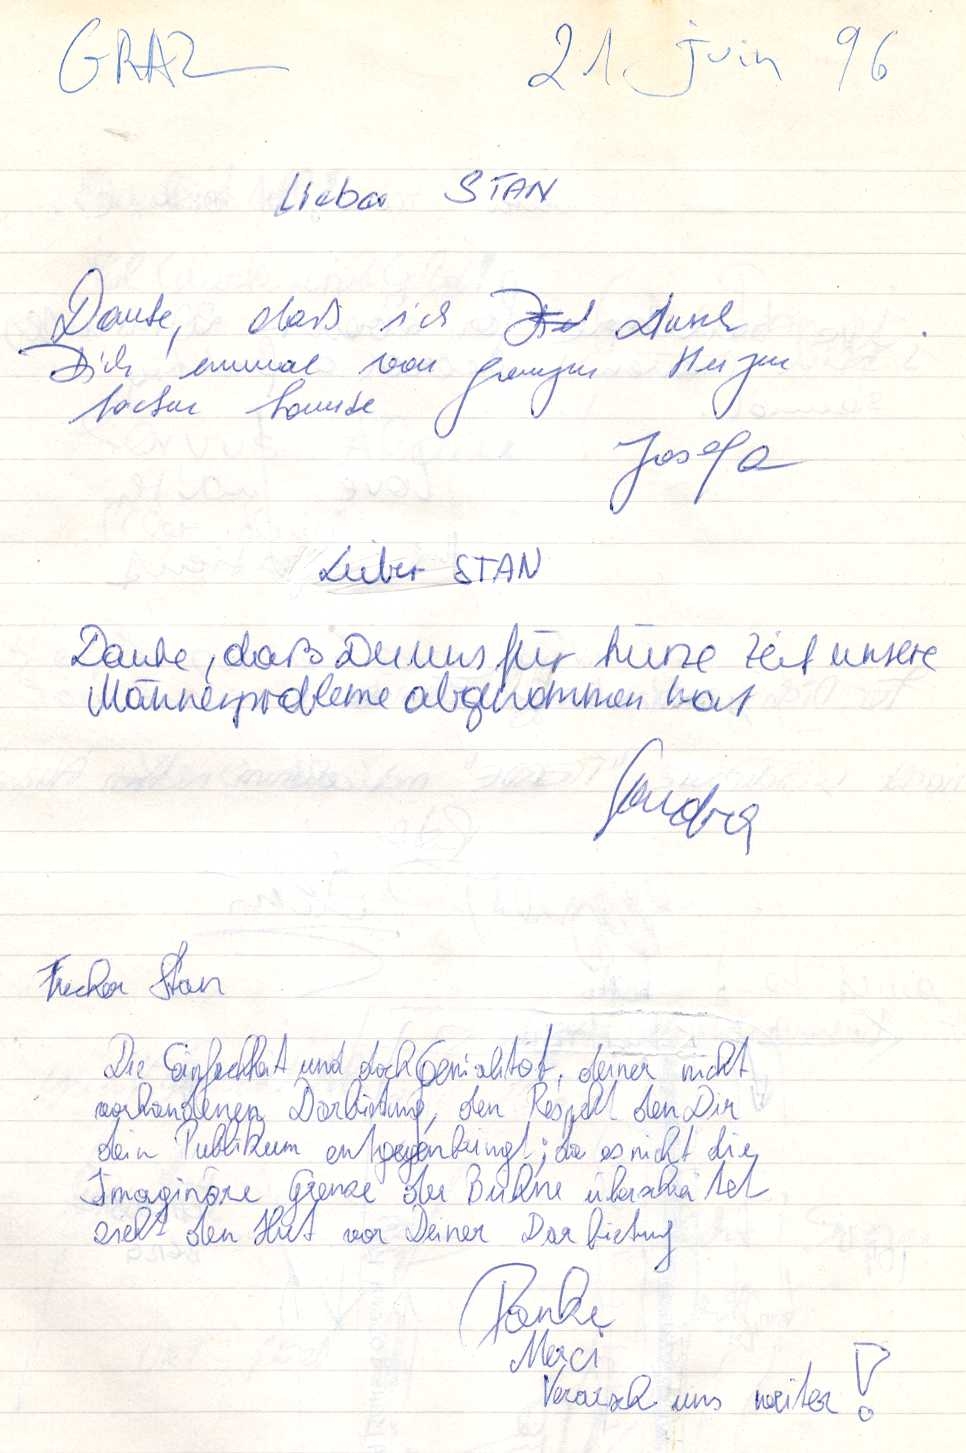 GRAZ 21. juin 96
Lieber STAN
Danke, daß ich Dich durch
Dich einmal von ganzem Herzen
lachen konnte
Josefa
Lieber STAN
Danke, daß Du uns für kurze Zeit unsere
Männerprobleme abgenommen hast
Sandra
Frecher Stan
Die Einfachheit und doch Genialität, deiner nicht
vorhandenen Darbietung, den Respekt den Dir
dein Publikum entgegenbringt; da es nicht die
Imaginäre Grenze der Bühne überschreitet
zieht den Hut vor Deiner Darbietung
Danke
Merci
Verarsch uns weiter!